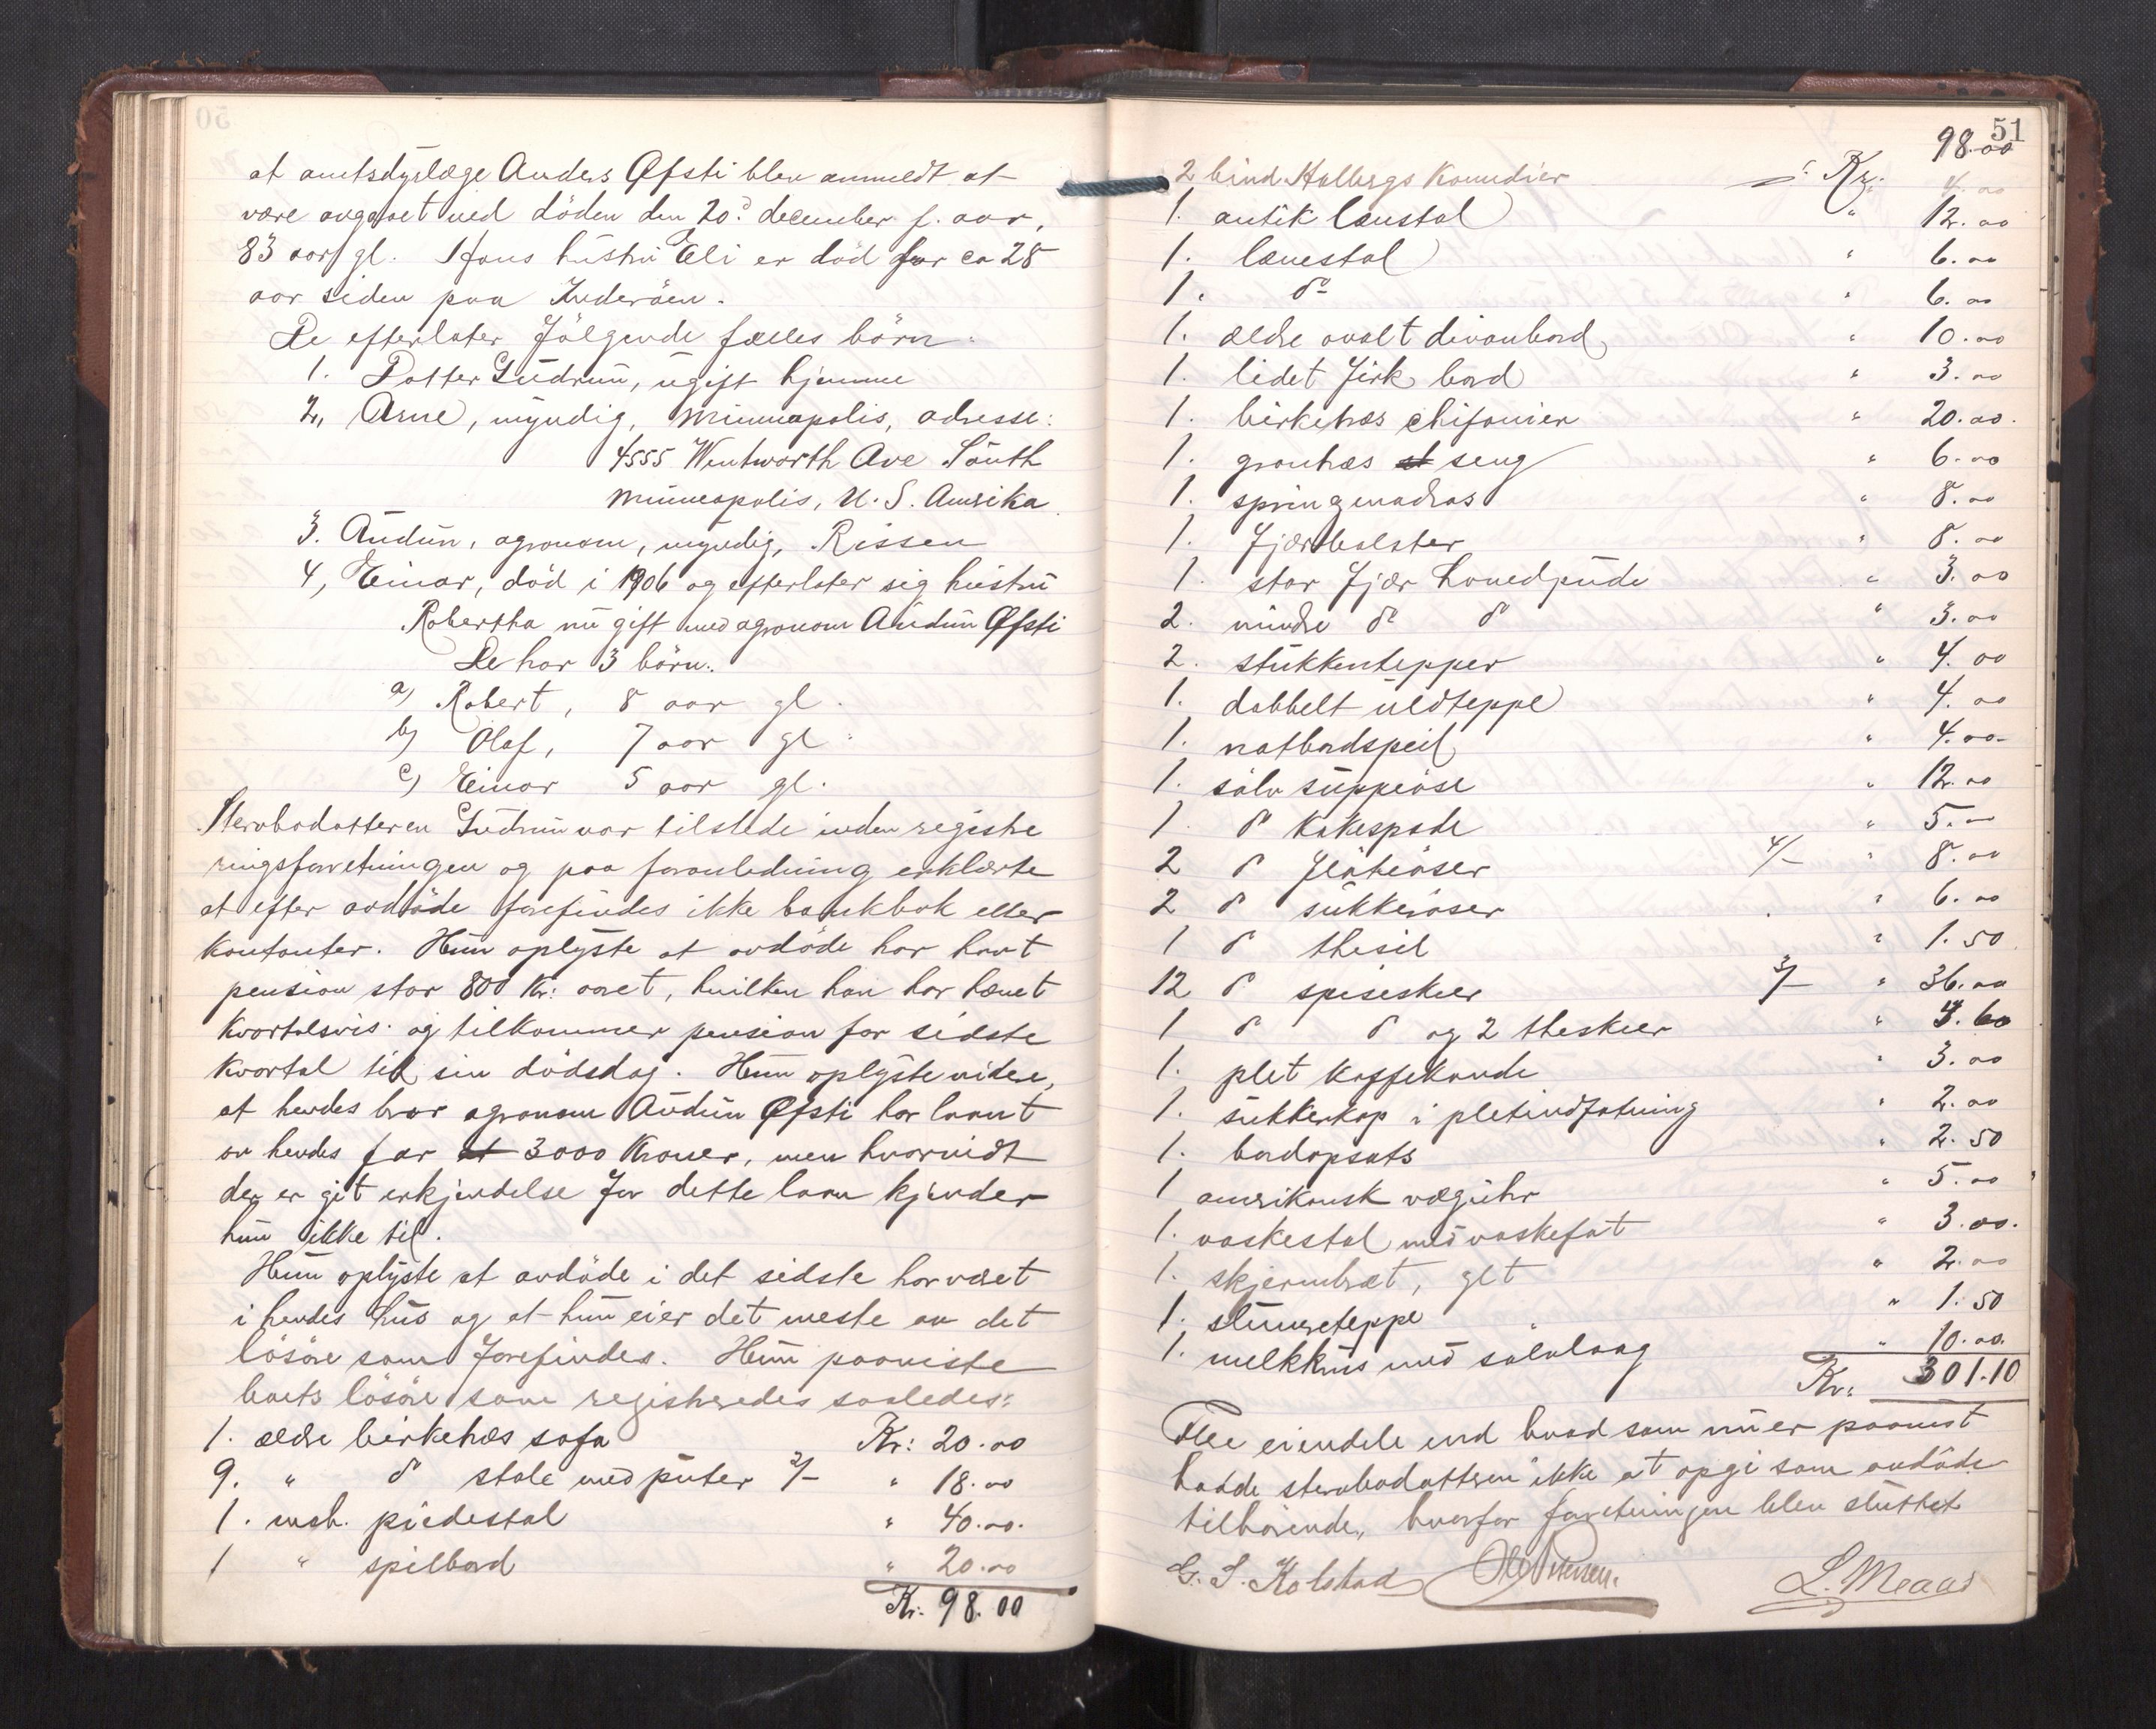 at amtsdyrlæge Anders Øfsti blev anmeldt at
være avgaaet ved döden den 20de december f. aar,
83 aar gl. Hans hustru Eli er död for ca 28
aar siden paa Inderöen.
De efterlater følgende fælles börn:
1. Datter Gudrun, ugift hjemme
2, Arne, myndig, Minneapolis, adresse:
4555 Wentworth Ave South
Minneapolis, U. S. Amerika.
3. Audun, agronom, myndig, Rissen
4, Einar, död i 1906 og efterlater sig hustru
Robertha nu gift med agronom Audun Øfsti
De har 3 börn:
a) Robert, 8 aar gl.
b) Olaf, 7 aar gl.
c) Einar 5 aar gl.
Stervbodatteren Gudrun var tilstede under registre
ringsforretningen og paa foranledning erklærte
at efter avdöde forefindes ikke bankbok eller
kontanter. Hun oplyste at avdöde har havt
pension stor 800 Kr: aaret, hvilken han har hævet
kvartalsvis og tilkommer pension for sidste
kvartal til sin dödsdag. Hun oplyste videre,
at hendes bror agronom Audun Øfsti har laant
av hendes far at 3000 Kroner, men hvorvidt
der er git erkjendelse for dette laan kjender
hun ikke til.
Hun oplyste at avdöde i det sidste har været
i hendes hus og at hun eier det meste av det
lösöre som forefindes. Hun paaviste
boets lösöre som registreredes saaledes:
1. ældre birketræs sofa Kr: 20.00
9. " do stole med puter 2/- " 18.00
1. mah. piedestal " 40.00.
1 " spilbord " 20.00
Kr. 98.00
51
98.00
2 bind Holbergs Komedier Kr. 4.00
1. antik lænstol " 12.00
1. lænestol " 6.00
1. do " 6.00
1. ældre ovalt divanbord " 10.00
1. lidet firk bord " 3.00
1. birketræs chifonier " 20.00.
1. grantræs st seng " 6.00
1. springmadras " 8.00
1. fjærbolster " 8.00
1. stor fjær hovedpude " 3.00
2. mindre do do " 3.00
2. stukkentepper " 4.00
1. dobbelt uldteppe " 4.00
1. natbordspeil " 4.00
1. sölv suppeöse " 12.00
1. do kakespade " 5.00
2 do flöteöser 4/- " 8.00
2 do sukkeröser " 6.00
1 do thesil " 1.50
12 do spiseskeer 3/- " 36.00
1 do do og 2 theskeer " 4.60
1. plet kaffekande " 3.00
1. sukkerkop i pletindfatning " 2.00
1. bordopsats " 2.50
1 amerikansk vægühr " 5.00
1. vaskestol med vaskefat " 3.00.
1. skjermbræt, glt " 2.00
1. slumreteppe " 1.50
1. melkkrus med sölvlaag " 10.00.
Kr: 301.10
Flere eiendele end hvad som nu er paavist
hadde stervbodatteren ikke at opgi som avdöde
tilhörende, hvorfor forretningen blev sluttet
G. S. Kolstad Ole Petersen. L. Meaas